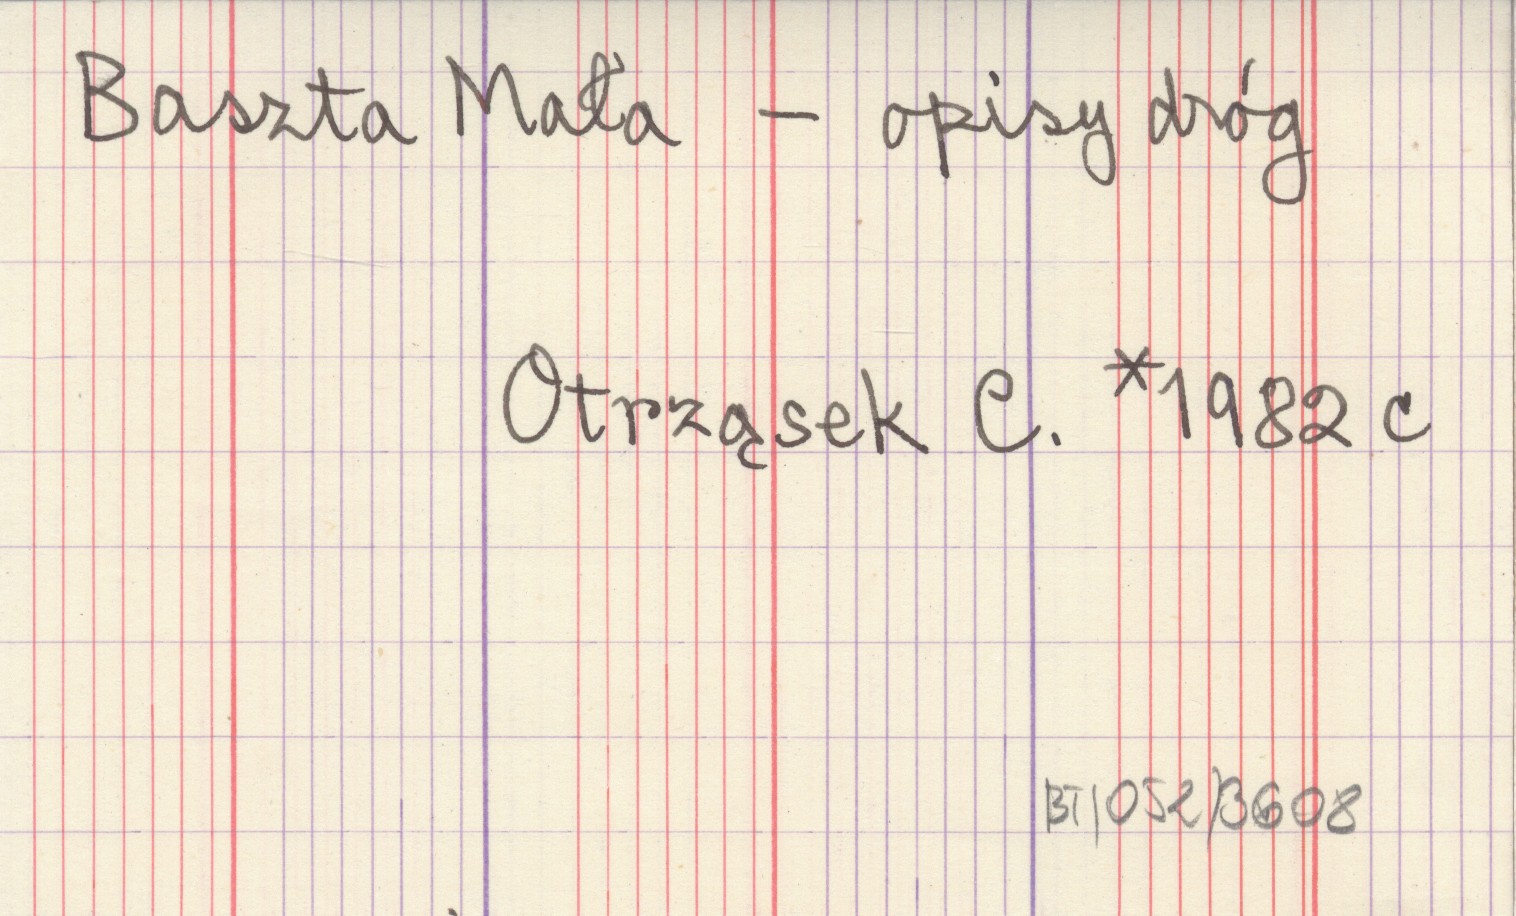 Baszta Mała - opisy dróg
Otrząsek C. *1982 c
BT/052/3608